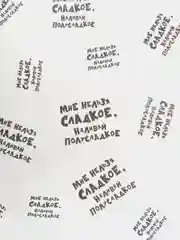 МНЕ НЕЛЬЗЯ
СЛАДКОЕ,
НАЛИВАЙ
ПОЛУСЛАДКОЕ
МНЕ НЕЛЬЗЯ
СЛАДКОЕ,
НАЛИВАЙ
ПОЛУСЛАДКОЕ
МНЕ НЕЛЬЗЯ
СЛАДКОЕ,
НАЛИВАЙ
ПОЛУСЛАДКОЕ
МНЕ НЕЛЬЗЯ
СЛАДКОЕ,
НАЛИВАЙ
ПОЛУСЛАДКОЕ
МНЕ НЕЛЬЗЯ
СЛАДКОЕ,
НАЛИВАЙ
ПОЛУСЛАДКОЕ
МНЕ НЕЛЬЗЯ
СЛАДКОЕ,
НАЛИВАЙ
ПОЛУСЛАДКОЕ
МНЕ НЕЛЬЗЯ
СЛАДКОЕ,
НАЛИВАЙ
ПОЛУСЛАДКОЕ
МНЕ НЕЛЬЗЯ
СЛАДКОЕ,
НАЛИВАЙ
ПОЛУСЛАДКОЕ